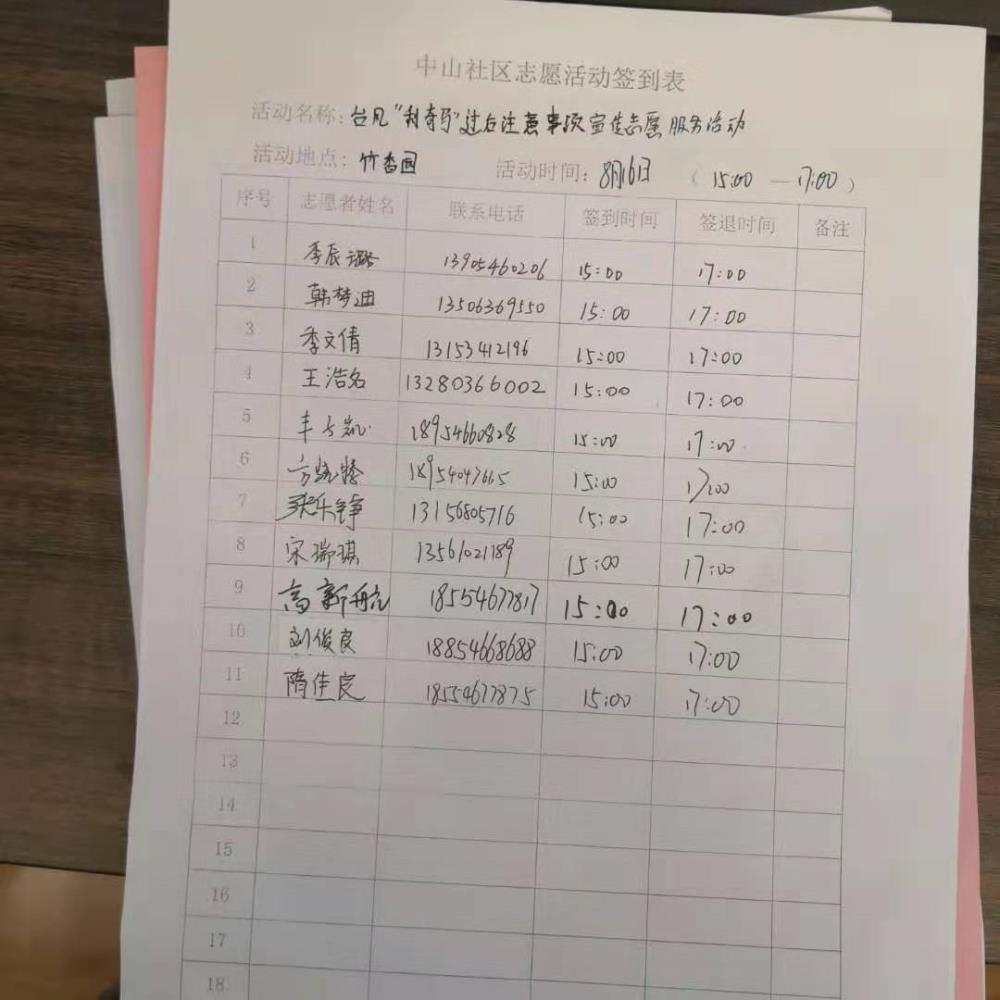 中山社区志愿活动签到表
活动名称: 台风"利奇马"过后注意事项宣传志愿服务活动
活动地点: 竹香园 活动时间: 8月16日 (15:00 — 17:00)
序号 志愿者姓名 联系电话 签到时间 签退时间 备注
1 李辰璐 13905460206 15:00 17:00
2 韩梦迪 13506369550 15:00 17:00
3 季文倩 13153412196 15:00 17:00
4 王浩名 13280366002 15:00 17:00
5 18954660828 15:00 17:00
6 18954047665 15:00 17:00
7 13156805716 15:00 17:00
8 宋瑞琪 13561021189 15:00 17:00
9 高新航 18554677817 15:00 17:00
10 刘俊良 18854668688 15:00 17:00
11 隋佳良 18554677875 15:00 17:00
12
13
14
15
16
17
18